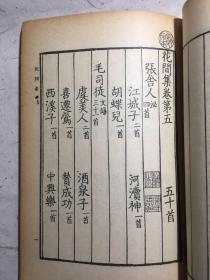 花間集卷第五　五十首
張舍人泌四首
江城子二首　河瀆神一首
胡蝶兒一首
毛司徒文錫三十一首
虞美人二首　酒泉子一首
喜遷鶯一首　贊成功一首
西溪子一首　中興樂一首